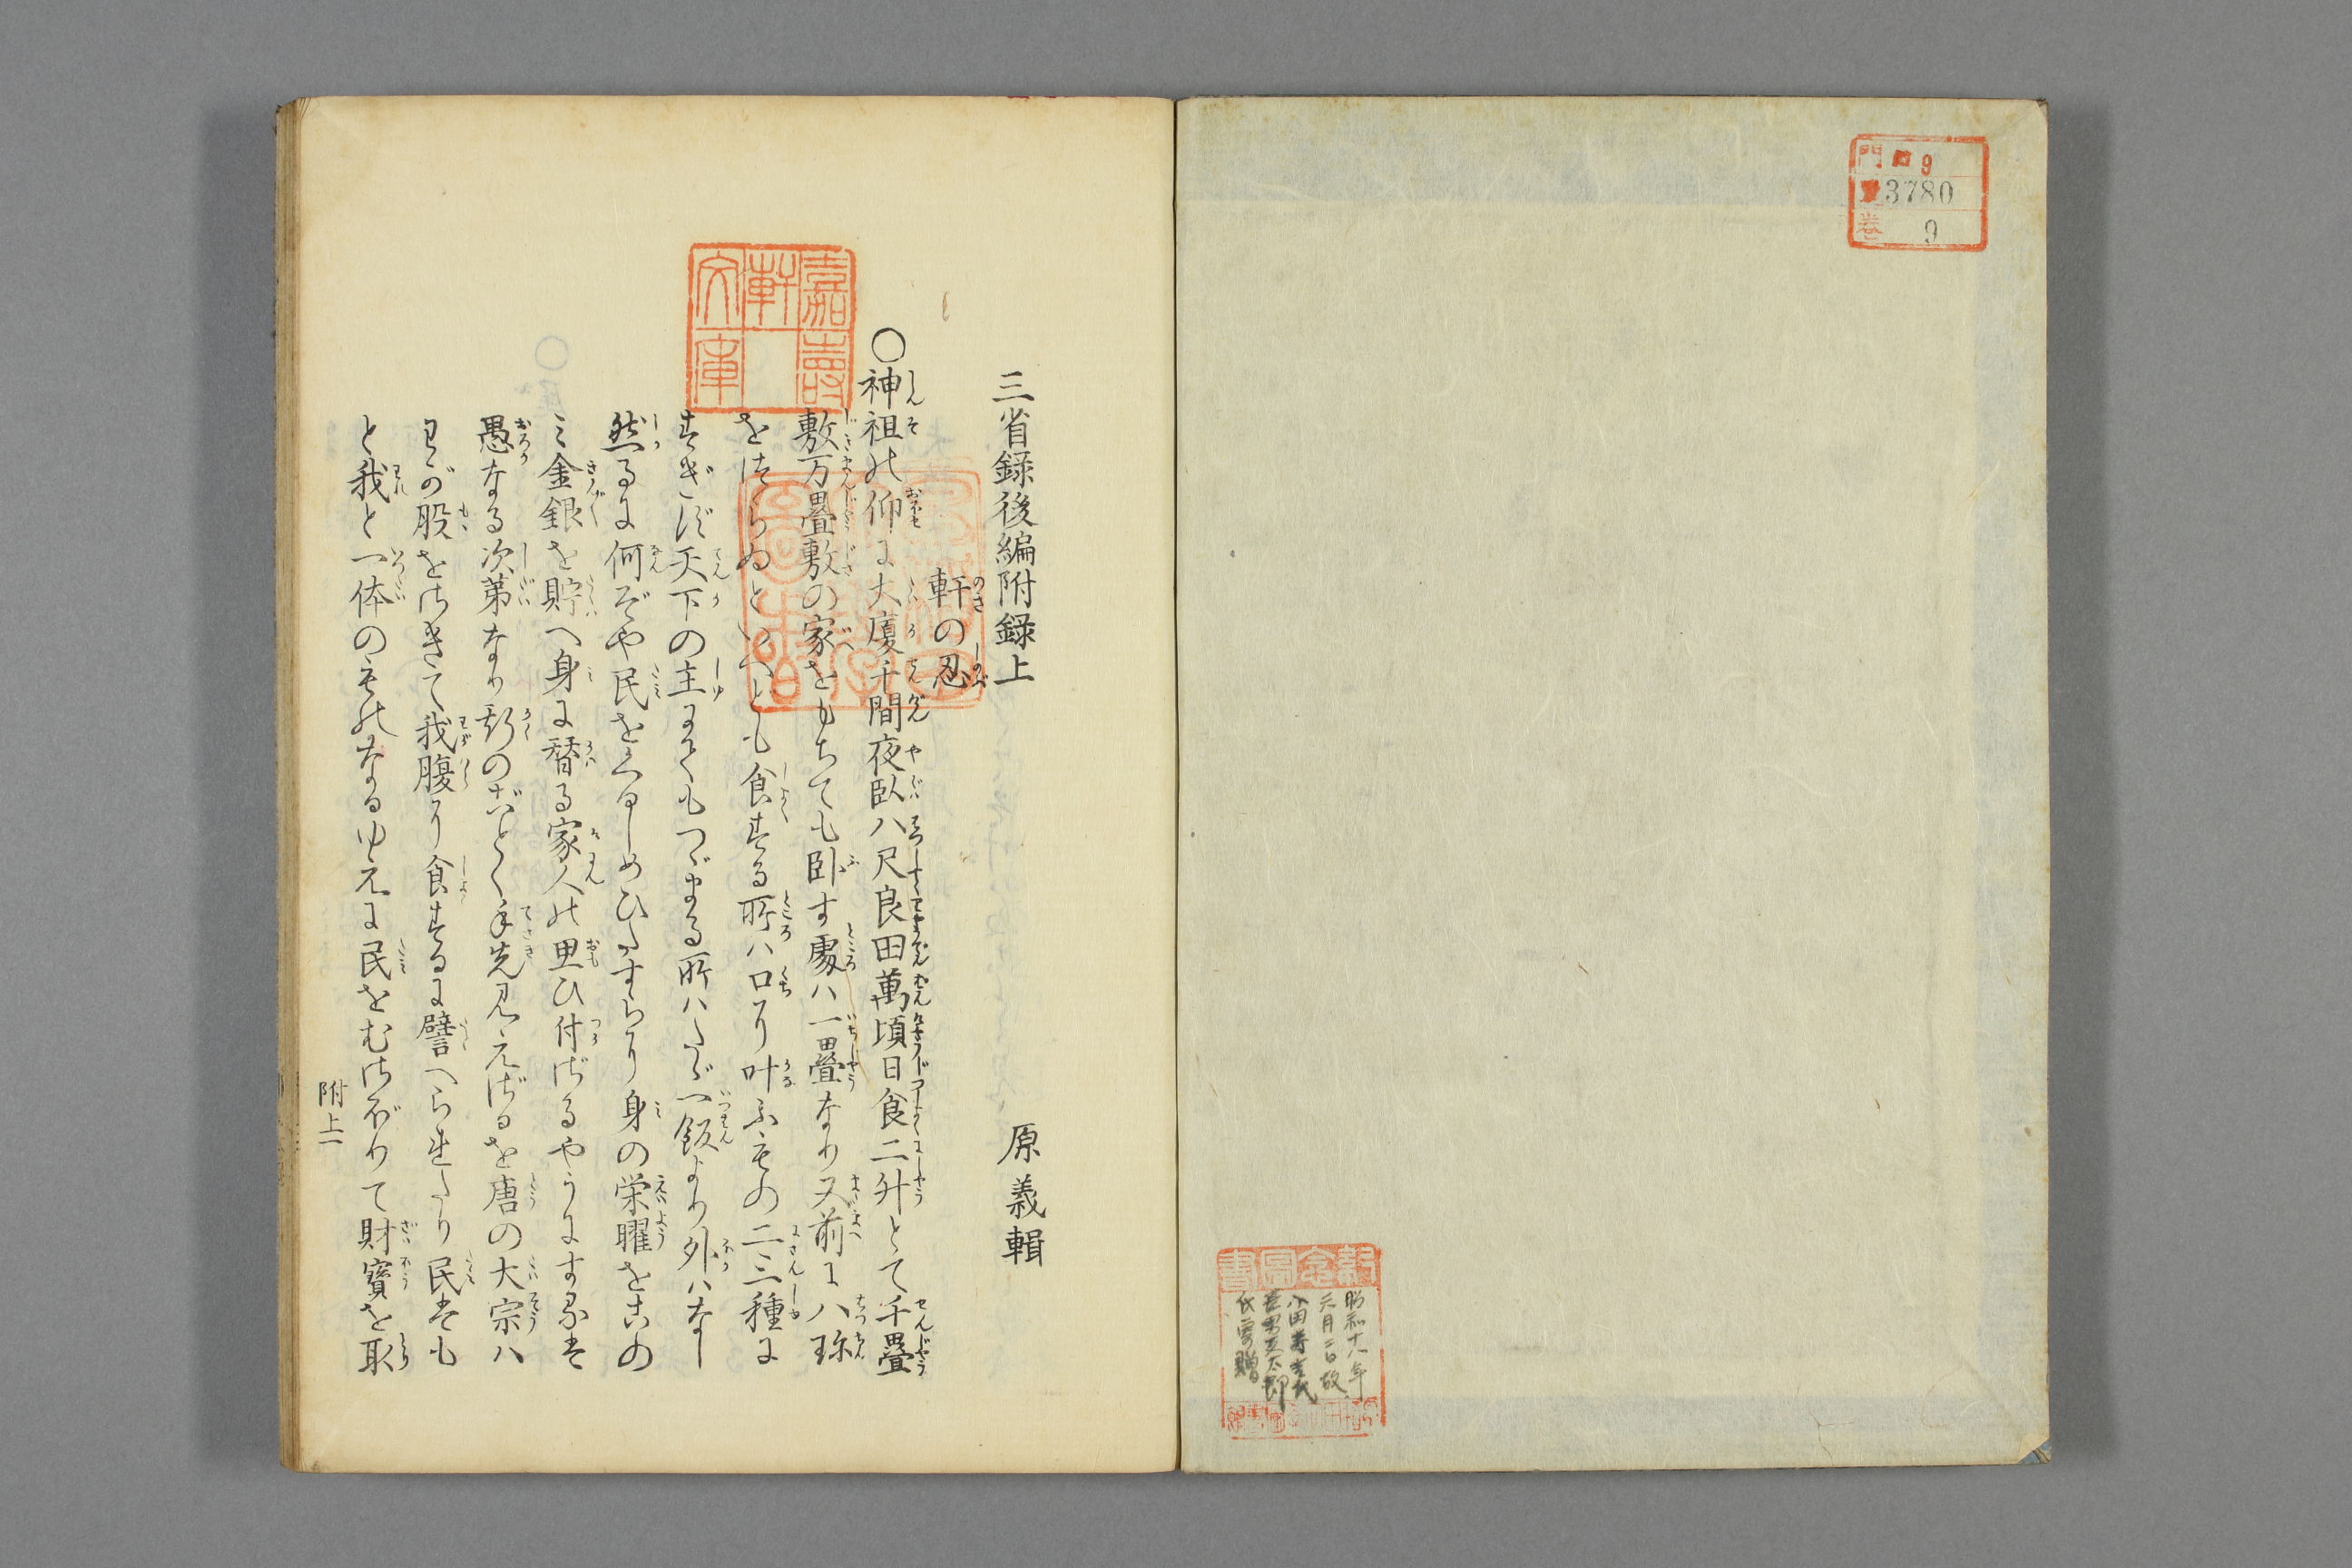 門 ロ 9
3780
巻 9
昭和十六年
二月二日故
八田幸吉氏
氏寄贈
三省録後編附録上
原義輯
軒の忍
〇神祖の仰に大廈千間夜臥八尺良田萬頃日食二升とて千疊
敷万疊敷の家をもちても臥す處ハ一疊なり又前に八珍
をつらぬといへども食する所ハ口に叶ふもの二三種に
すぎず天下の主にてもつゞまる所ハたゞ一飯より外ハなし
然るに何ぞや民をくるしめひたすらに身の栄曜をこの
ミ金銀を貯へ身に替る家人の思ひ付ざるやうにするは
愚なる次第なり斯のごとく手先見えざるを唐の大宗ハ
わが股をさきて我腹に食するに譬へられたり民は
と我と一体のものなるゆえに民をむさぼりて財寳を取
附上一
嘉壽軒文庫